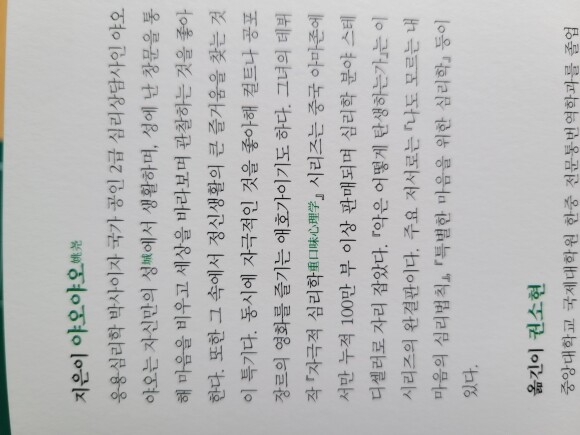 지은이 야오야오姚尧
응용심리학 박사이자 국가 공인 2급 심리상담사인 야오
야오는 자신만의 성城에서 생활하며, 성에 난 창문을 통
해 마음을 비우고 세상을 바라보며 관찰하는 것을 좋아
한다. 또한 그 속에서 정신생활의 큰 즐거움을 찾는 것
이 특기다. 동시에 자극적인 것을 좋아해 컬트나 공포
장르의 영화를 즐기는 애호가이기도 하다. 그녀의 데뷔
작 『자극적 심리학重口味心理学』 시리즈는 중국 아마존에
서만 누적 100만 부 이상 판매되며 심리학 분야 스테
디셀러로 자리 잡았다. 『악은 어떻게 탄생하는가』는 이
시리즈의 완결판이다. 주요 저서로는 『나도 모르는 내
마음의 심리법칙』, 『특별한 마음을 위한 심리학』 등이
있다.
옮긴이 권소현
중앙대학교 국제대학원 한중 전문통번역학과를 졸업